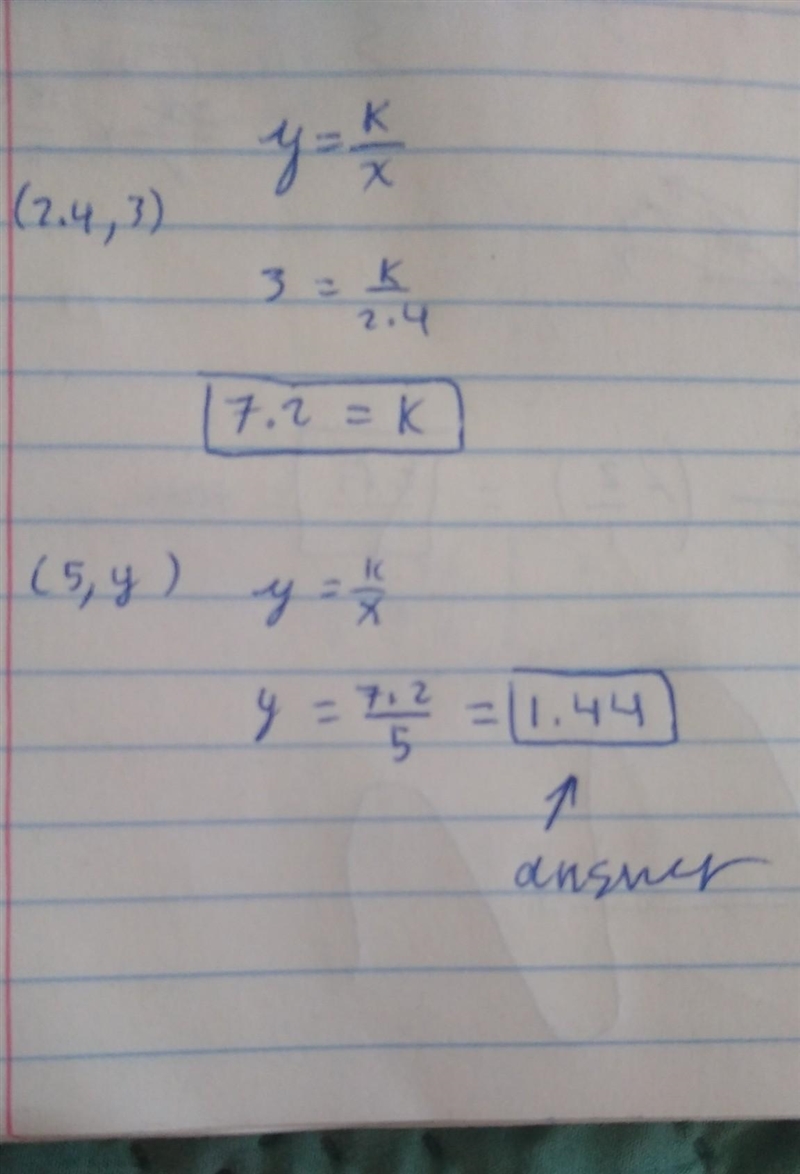 y = K/x
(2.4, 3)
3 = K/2.4
7.2 = K
(5, y) y = K/x
y = 7.2/5 = 1.44
↑
answer